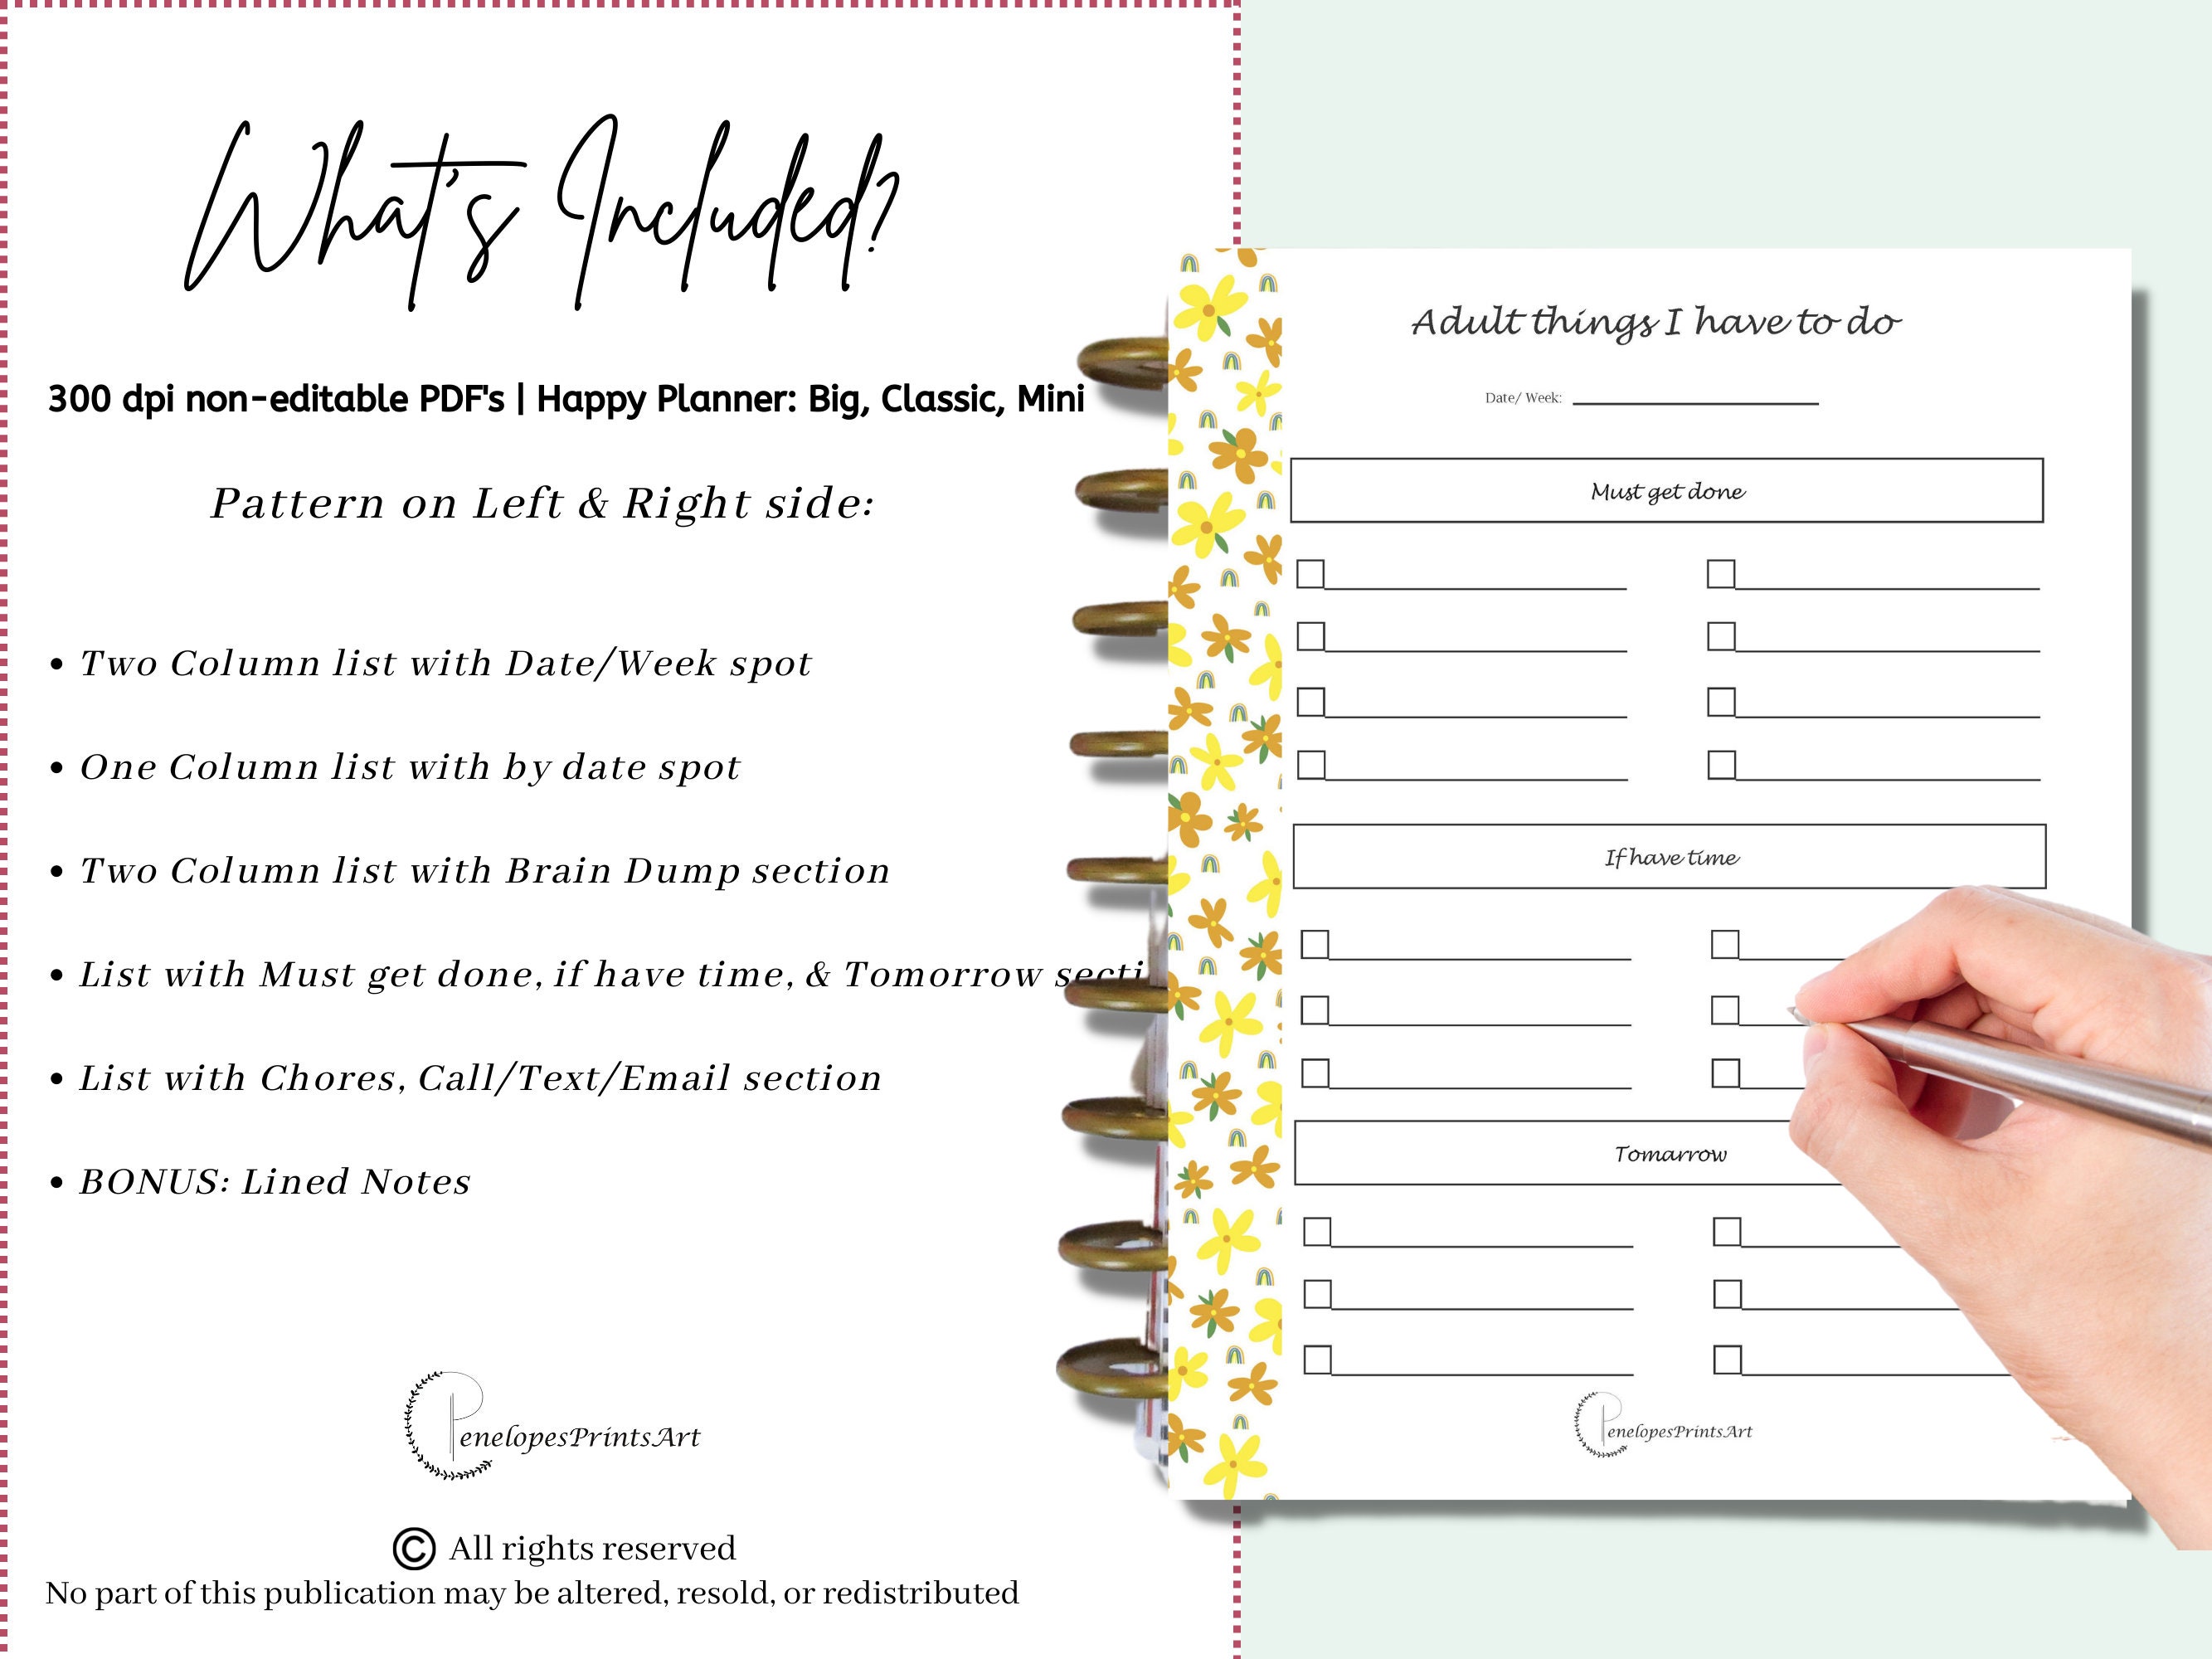 What's Included?
300 dpi non-editable PDF's | Happy Planner: Big, Classic, Mini
Pattern on Left & Right side:
• Two Column list with Date/Week spot
• One Column list with by date spot
• Two Column list with Brain Dump section
• List with Must get done, if have time, & Tomorrow secti
• List with Chores, Call/Text/Email section
• BONUS: Lined Notes
PenelopesPrintsArt
© All rights reserved
No part of this publication may be altered, resold, or redistributed
Adult things I have to do
Date/ Week:
Must get done
If have time
Tomarrow
PenelopesPrintsArt